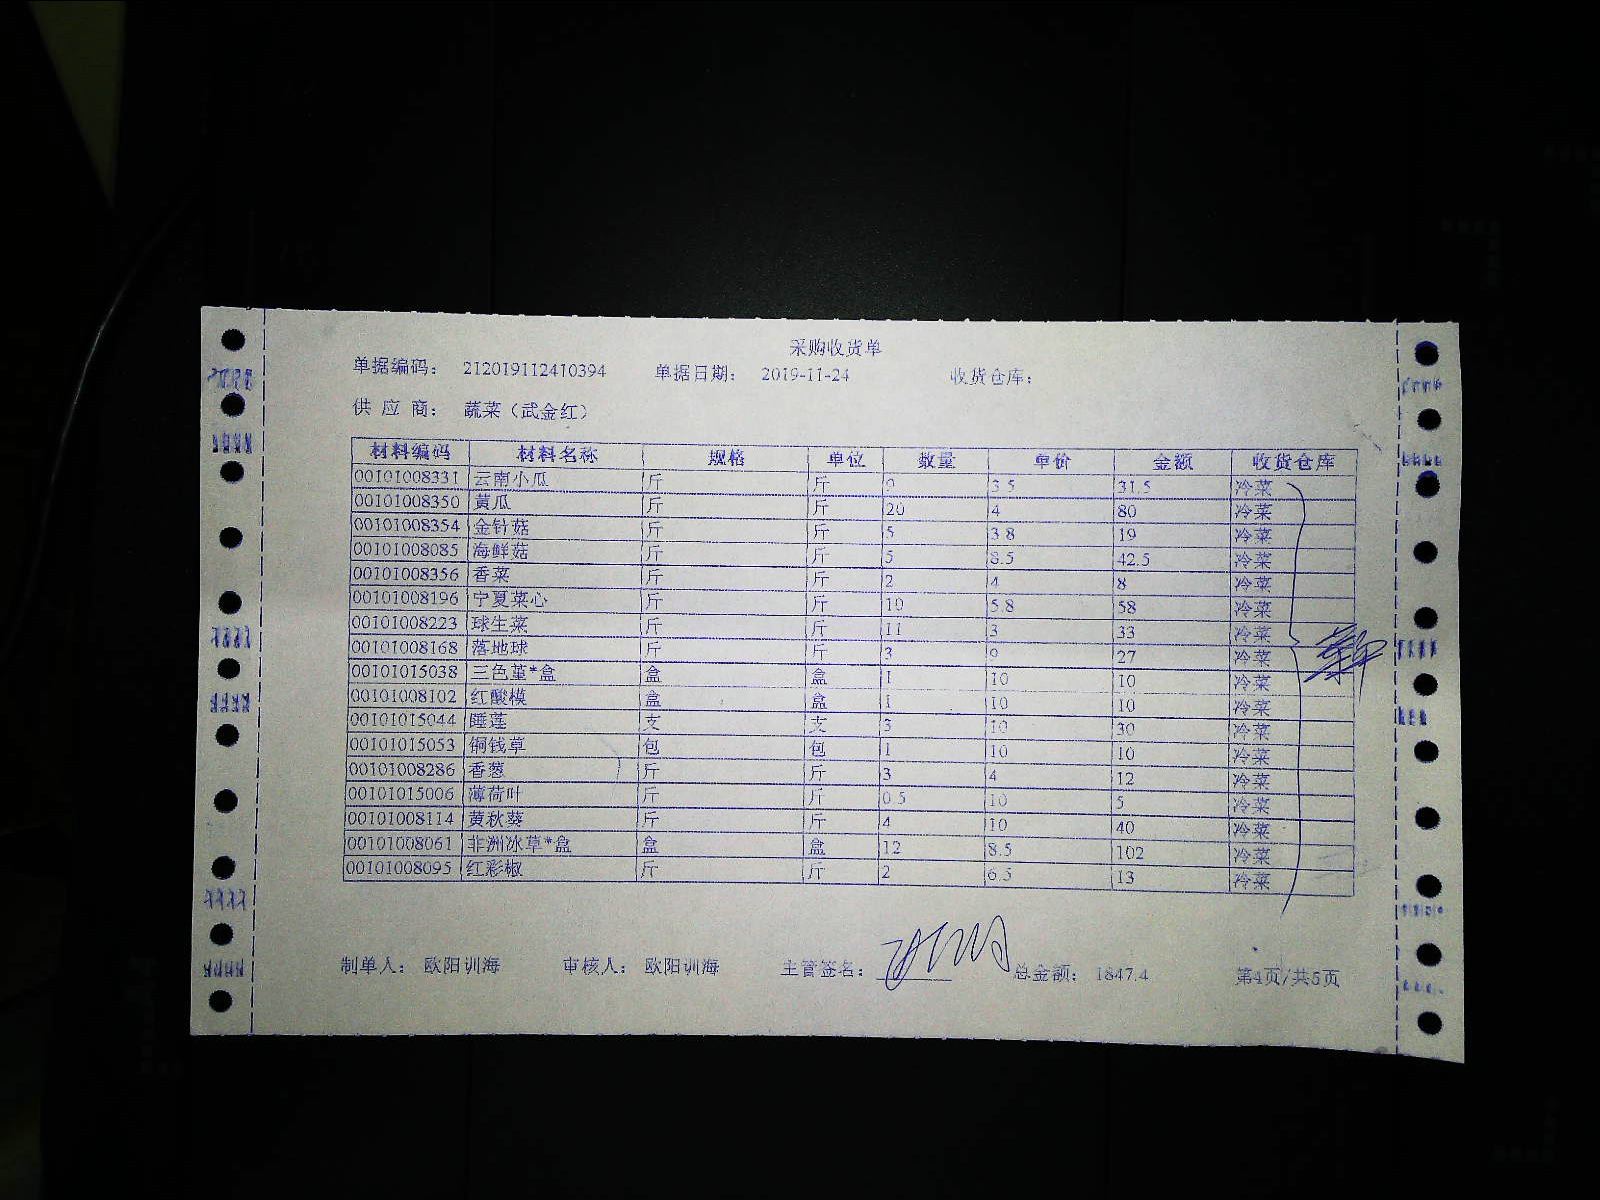 采购收货单
单据编码： 212019112410394 单据日期： 2019-11-24 收货仓库：
供 应 商： 蔬菜（武金红）
材料编码 材料名称 规格 单位 数量 单价 金额 收货仓库
00101008331 云南小瓜 斤 斤 9 3.5 31.5 冷菜
00101008350 黄瓜 斤 斤 20 4 80 冷菜
00101008354 金针菇 斤 斤 5 3.8 19 冷菜
00101008085 海鲜菇 斤 斤 5 8.5 42.5 冷菜
00101008356 香菜 斤 斤 2 4 8 冷菜
00101008196 宁夏菜心 斤 斤 10 5.8 58 冷菜
00101008223 球生菜 斤 斤 11 3 33 冷菜
00101008168 落地球 斤 斤 3 9 27 冷菜
00101015038 三色堇*盒 盒 盒 1 10 10 冷菜
00101008102 红酸模 盒 盒 1 10 10 冷菜
00101015044 睡莲 支 支 3 10 30 冷菜
00101015053 铜钱草 包 包 1 10 10 冷菜
00101008286 香葱 斤 斤 3 4 12 冷菜
00101015006 薄荷叶 斤 斤 0.5 10 5 冷菜
00101008114 黄秋葵 斤 斤 4 10 40 冷菜
00101008061 非洲冰草*盒 盒 盒 12 8.5 102 冷菜
00101008095 红彩椒 斤 斤 2 6.5 13 冷菜
制单人： 欧阳训海 审核人： 欧阳训海 主管签名： 总金额： 1847.4 第4页/共5页